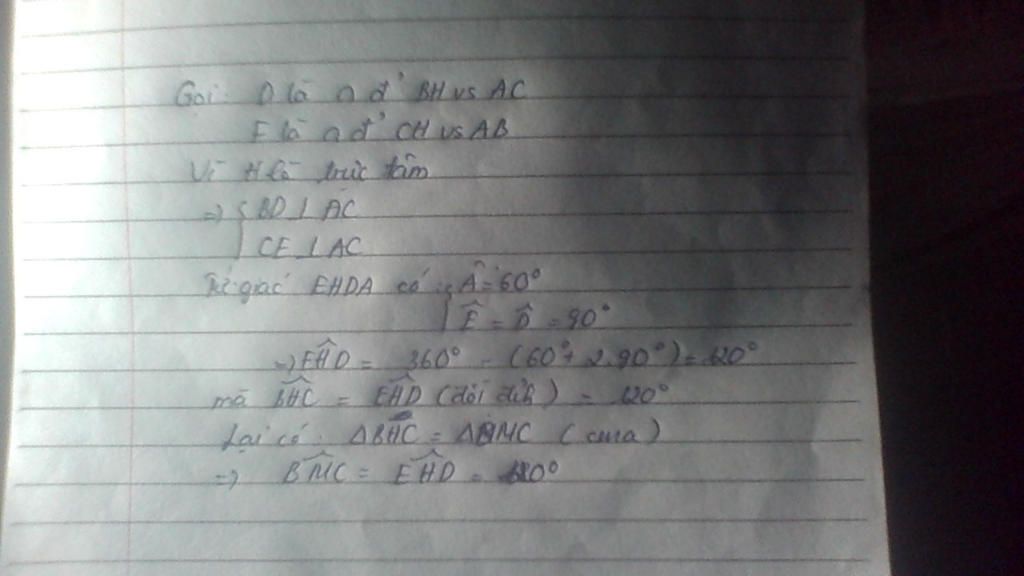 Gọi: D là n đ' BH vs AC
E là n đ' CH vs AB
Vì H là trực tâm
=> { BD ⊥ AC
CE ⊥ AC
Tứ giác EHDA có: { Â = 60°
Ê = D̂ = 90°
=> EĤD = 360° - (60° + 2.90°) = 120°
mà BĤC = EĤD (đối đỉnh) = 120°
Lại có: ΔBHC = ΔBMC (cma)
=> BM̂C = EĤD = 120°